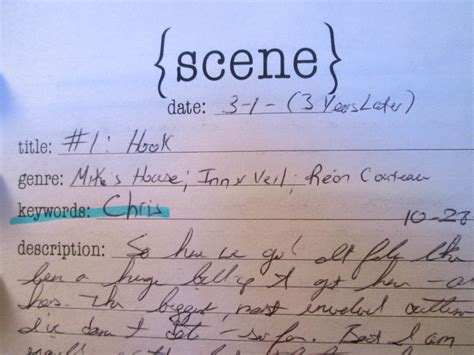 {scene}
date: 3-1- (3 Years Later)
title: #1: Hook
genre: Mike's House; Inny Veil; Réon Couteau
keywords: Chris
10-23
description: So here we go! It feels like
been a huge build up to get here -
here. The biggest, most involved outline
I've done yet - so far. But I am